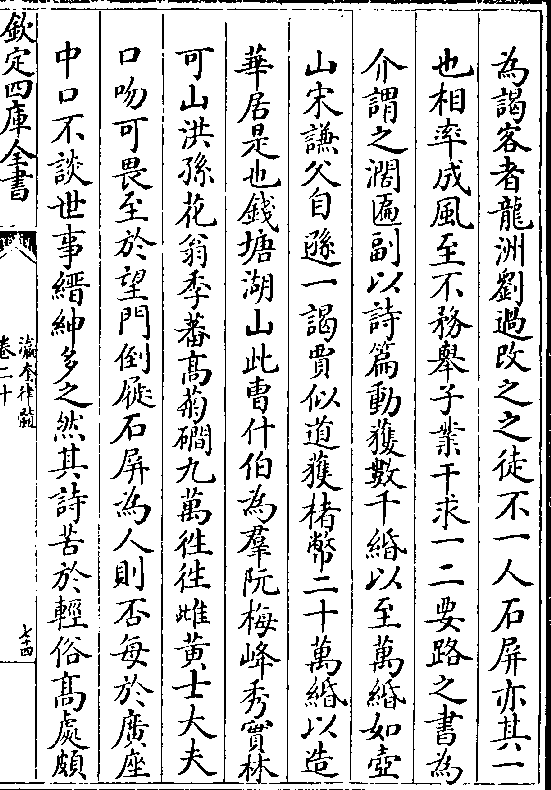 為謁客者龍洲劉過改之之徒不一人石屏亦其一
也相率成風至不務舉子業干求一二要路之書為
介謂之濶匾副以詩篇動獲數千緡以至萬緡如壺
山宋謙父自遜一謁賈似道獲楮幣二十萬緡以造
華居是也錢塘湖山此曹什伯為羣阮梅峰秀實林
可山洪孫花翁季蕃髙菊磵九萬徃徃雌黄士大夫
口吻可畏至於望門倒屣石屏為人則否每於廣座
中口不談世事縉紳多之然其詩苦於輕俗髙處頗
欽定四庫全書
瀛奎律髓
卷二十
七十四